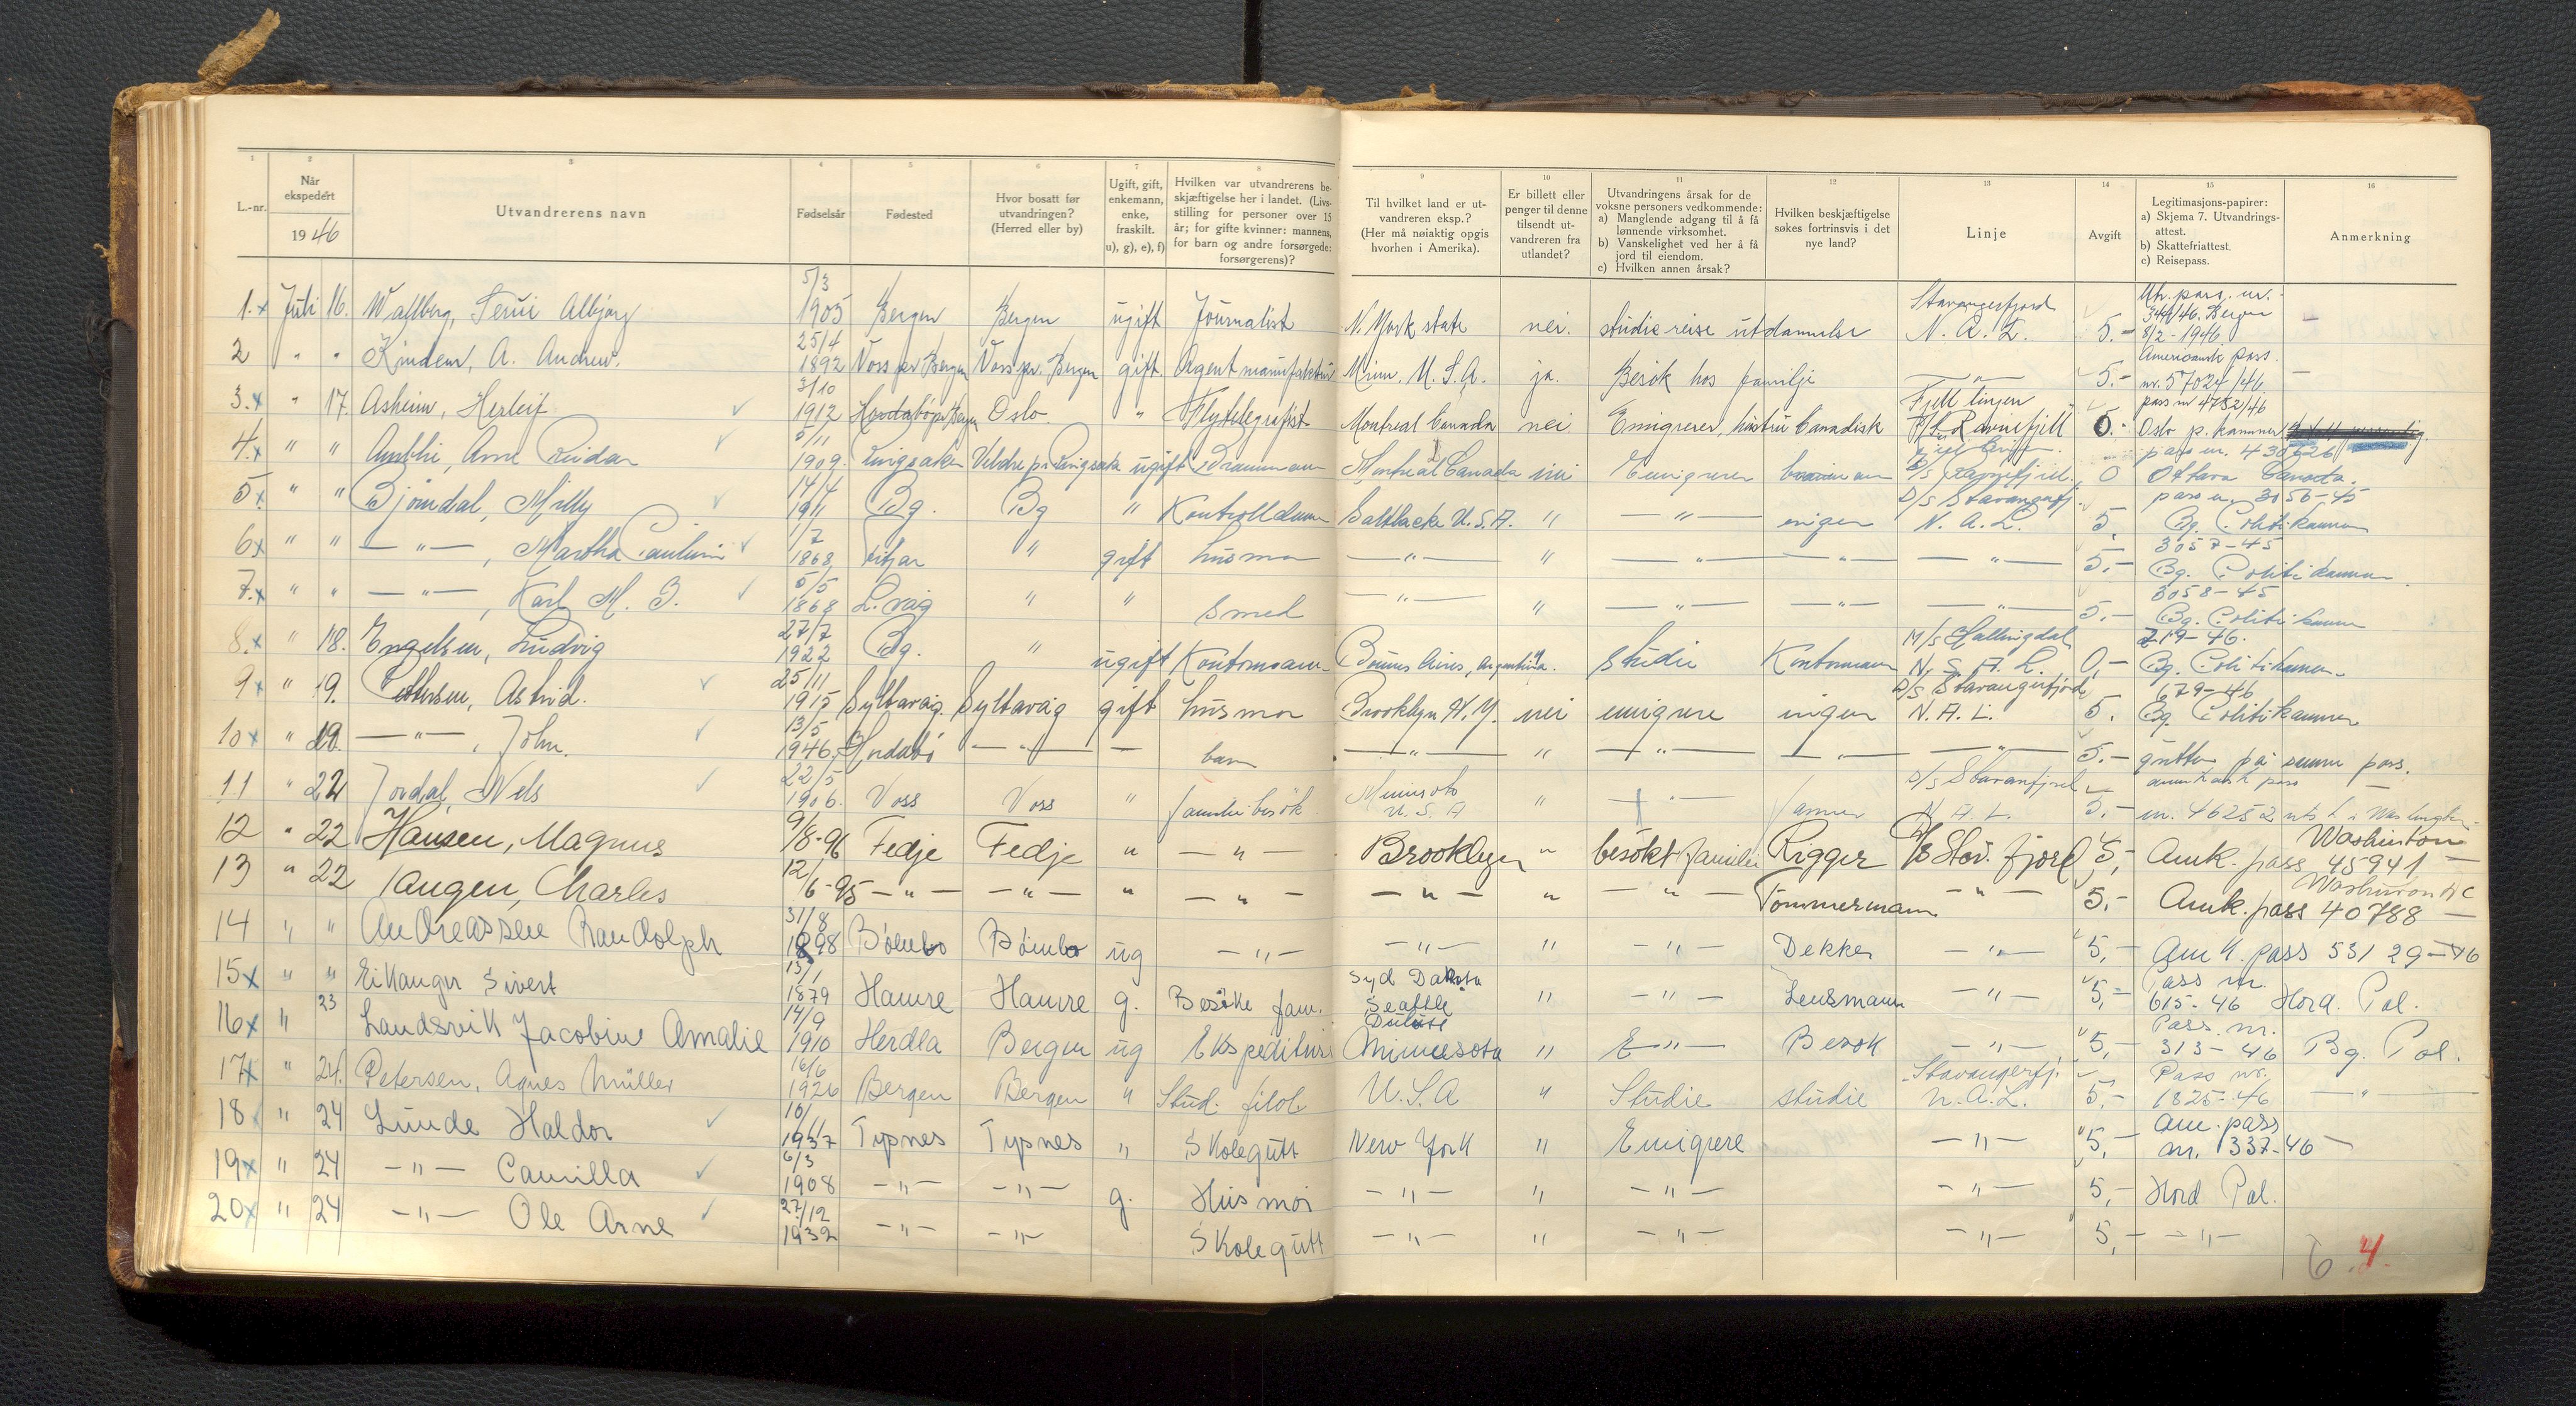 1 2 3 4 5 6 7 8 9 10 11 12 13 14 15 16
L.-nr.
Når ekspedert 1946
Utvandrerens navn
Fødselsår
Fødested
Hvor bosatt før utvandringen? (Herred eller by)
Ugift, gift, enkemann, enke, fraskilt. u), g), e), f)
Hvilken var utvandrerens beskjæftigelse her i landet. (Livsstilling for personer over 15 år; for gifte kvinner: mannens, for barn og andre forsørgede: forsørgerens)?
Til hvilket land er utvandreren eksp.? (Her må nøiaktig opgis hvorhen i Amerika).
Er billett eller penger til denne tilsendt utvandreren fra utlandet?
Utvandringens årsak for de voksne personers vedkommende: a) Manglende adgang til å få lønnende virksomhet. b) Vanskelighet ved her å få jord til eiendom. c) Hvilken annen årsak?
Hvilken beskjæftigelse søkes fortrinsvis i det nye land?
Linje
Avgift
Legitimasjons-papirer: a) Skjema 7. Utvandringsattest. b) Skattefriattest. c) Reisepass.
Anmerkning
1.x Juli 16. Wallberg, Albjørg 5/3 1905 Bergen Bergen ugift Journalist N. York state nei. studie reise utdannelse Stavangerfjord N. A. L. 5.- pass. nr. 344/46. Bergen 8/2-1946 —
2 " " Kindem, A. Andrew. 25/4 1892 Voss pr Bergen Voss pr. Bergen gift. Agent manufaktur Minn. U.S.A. ja. Besøk hos familje — " — 5.- Amerikansk pass. nr. 57024/46 —
3.x " 17. Asheim, Herleif 3/10 1912 Hordabø pr Bergen Oslo " Flytelegrafist Montreal Canada nei Emigrerer, hustru Canadisk Fjell linjen 0.- pass nr 4752/46 Oslo p. kammer
4.x " " Arne Reidar 5/11 1909. Ringsaker Veldre pr. Ringsaker ugift Montreal Canada nei Emigrerer 0 pass nr. Ottawa Canada.
5x. " " Bjørndal, Milly 14/4 1911 Bg. Bg " Kontrolldame U.S.A. " — " — ingen D/S Stavangerfj. N. A. L. 5, pass nr 3056-45 Bg. Politikammer
6x " " — " —, Martha Pauline 1/7 1868 Fitjar " gift husmor — " — " — " — — " — — " — 5.- 3057-45 Bg. Politikammer.
7.x " " — " —, Karl M. J. 5/5 1868 L.våg " " Smed — " — " — " — — " — — " — 5.- 3058-45 Bg. Politikammer
8.x " 18. Engelsen, Ludvig 27/7 1922 Bg. " ugift Kontormann Buenos Aires, Argentina. " studie Kontormann M/S Hallingdal N. S. A. L. 0,- 719-46. Bg. Politikammer.
9x " 19. Pettersen, Astrid. 25/11 1915 Syltavåg. Syltavåg gift husmor Brooklyn N.Y. nei emigrere ingen D/S Stavangerfjord N.A.L. 5. 679-46 Bg Politikammer
10x " 19. — " —, John. 13/5 1946 Hordabø — " — — barn — " — " — " — — " — — " — 5.- gutten på samme pass.
11 " 22 Jordal, Nels 22/5 1906. Voss Voss " familie besøk Minnesota U.S.A " — " — farmer D/S Stavanfjord N.A.L. 5.- amerikansk pass nr. 46252 uts. i Washington
12 " 22 Hansen, Magnus 9/8-96 Fedje Fedje " — " — Brooklyn " besøkt familie Rigger D/S Stav. fjord 5,- Amk. pass 45941 Washinton —
13 " 22 Tangen, Charles 12/6-95 — " — — " — " — " — — " — " — " — Tømmermann — " — 5.- Amk. pass 40788 Washinton DC —
14 " " Andreassen Randolph 31/8 1898 Bømlo Bømlo ug — " — — " — " — " — Dekker — " — 5,- Am K. pass 53129-46
15x " " Eikanger Sivert 13/1 1879 Hamre Hamre g. Besøke fam. Syd Dakota Seattle " — " — Lensmann — " — 5,- Pass nr. 615-46 Hord. Pol.
16x " 23 Landsvik Jacobine Amalie 14/9 1910 Herdla Bergen ug Ekspeditrise Duluth Minnesota " E — " — Besøk — " — 5,- Pass. nr. 313-46 Bg. Pol.
17x " 24. Petersen, Agnes Müller 16/6 1926 Bergen Bergen " Stud. filol. U.S.A " Studie studie Stavangerfj. N.A.L. 5,- Pass nr. 1825-46 — " —
18 " 24 Lunde Haldor 10/11 1937 Typnes Typnes " Skolegutt New York " Emigrere — " — 5,- Am. pass nr. 1337-46 —
19x " 24 — " — Camilla 6/3 1908 — " — — " — g. Husmor — " — " — " — — " — 5,- Hord Pol.
20x " 24 — " — Ole Arne 27/12 1932 — " — — " — Skolegutt — " — " — " — — " — 5,- — " —
6 4.